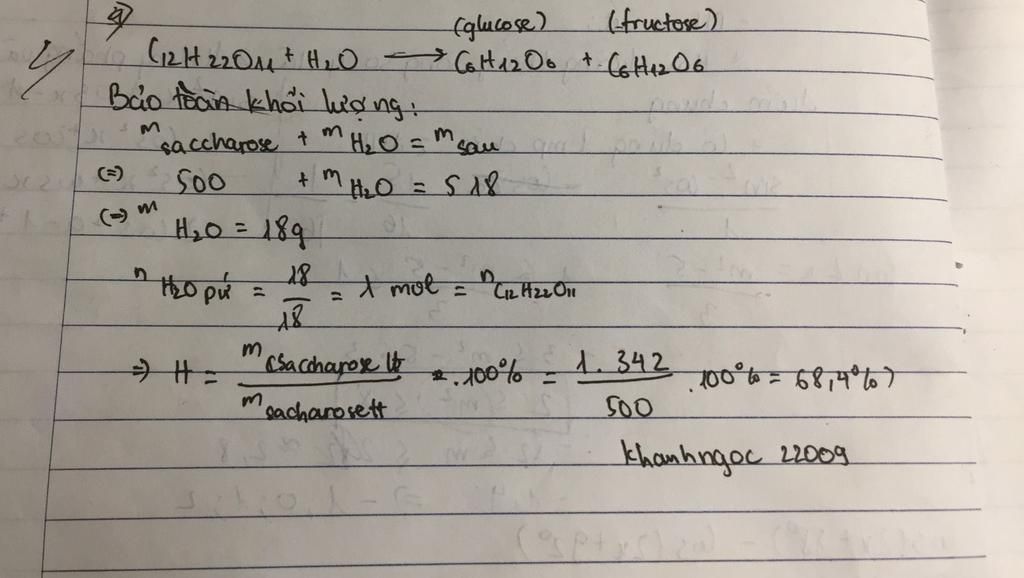 a)
(glucose) (fructose)
C12H22O11 + H2O → C6H12O6 + C6H12O6
Bảo toàn khối lượng:
m saccharose + m H2O = m sau
(=) 500 + m H2O = 518
(=) m H2O = 18g
n H2O pứ = 18/18 = 1 mol = n C12H22O11
=> H = m saccharose lt / m sacharosett .100% = 1.342/500 .100% = 68,4%)
khanhngoc 22009